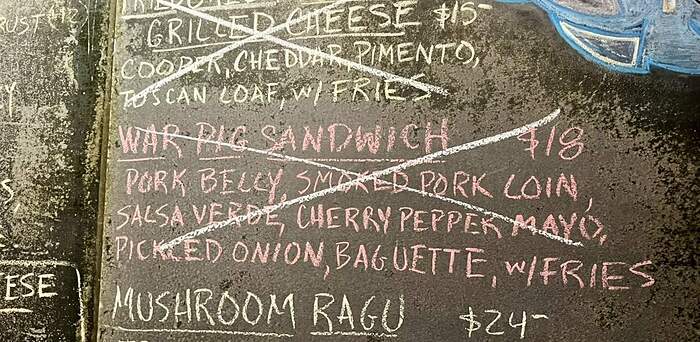 GRILLED CHEESE $15-
COOPER, CHEDDAR PIMENTO,
TOSCAN LOAF, W/ FRIES
WAR PIG SANDWICH $18
PORK BELLY, SMOKED PORK LOIN,
SALSA VERDE, CHERRY PEPPER MAYO,
PICKLED ONION, BAGUETTE, W/FRIES
ESE
MUSHROOM RAGU $24-